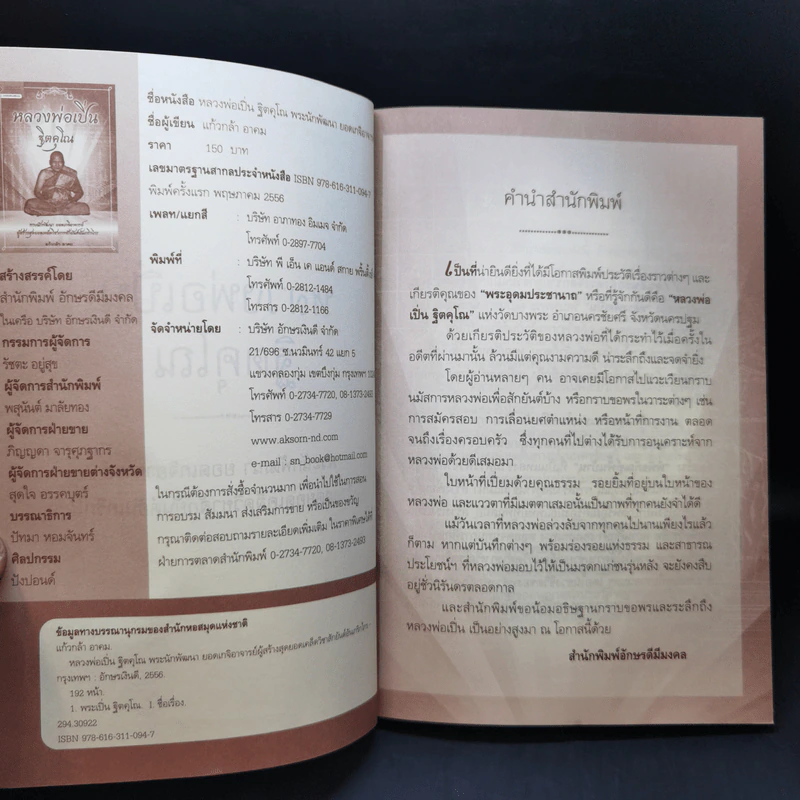 หลวงพ่อเปิ่น
ฐิตคุโณ
สร้างสรรค์โดย
สำนักพิมพ์ อักษรดีมีมงคล
ในเครือ บริษัท อักษรเงินดี จำกัด
กรรมการผู้จัดการ
รัชตะ อยู่สุข
ผู้จัดการสำนักพิมพ์
พสุนันต์ มาลัยทอง
ผู้จัดการฝ่ายขาย
ภิญญดา จารุศุภฐากร
ผู้จัดการฝ่ายขายต่างจังหวัด
สุดใจ อรรคบุตร์
บรรณาธิการ
ปัทมา หอมจันทร์
ศิลปกรรม
ปังปอนด์
ชื่อหนังสือ หลวงพ่อเปิ่น ฐิตคุโณ พระนักพัฒนา ยอดเกจิอาจาร
ชื่อผู้เขียน แก้วกล้า อาคม
ราคา 150 บาท
เลขมาตรฐานสากลประจำหนังสือ ISBN 978-616-311-094-7
พิมพ์ครั้งแรก พฤษภาคม 2556
เพลท/แยกสี : บริษัท อาภาทอง อิมเมจ จำกัด
โทรศัพท์ 0-2897-7704
พิมพ์ที่ : บริษัท พี เอ็น เค แอนด์ สกาย พริ้นติ้ง
โทรศัพท์ 0-2812-1484
โทรสาร 0-2812-1166
จัดจำหน่ายโดย : บริษัท อักษรเงินดี จำกัด
21/696 ซ.นวมินทร์ 42 แยก 5
แขวงคลองกุ่ม เขตบึงกุ่ม กรุงเทพฯ
โทรศัพท์ 0-2734-7720, 08-1373-2493
โทรสาร 0-2734-7729
www.aksorn-nd.com
e-mail : sn_book@hotmail.com
ในกรณีต้องการสั่งซื้อจำนวนมาก เพื่อนำไปใช้ในการสอน
การอบรม สัมมนา ส่งเสริมการขาย หรือเป็นของขวัญ
กรุณาติดต่อสอบถามรายละเอียดเพิ่มเติม ในราคาพิเศษได้ที่
ฝ่ายการตลาดสำนักพิมพ์ 0-2734-7720, 08-1373-2493
ข้อมูลทางบรรณานุกรมของสำนักหอสมุดแห่งชาติ
แก้วกล้า อาคม.
หลวงพ่อเปิ่น ฐิตคุโณ พระนักพัฒนา ยอดเกจิอาจารย์ผู้สร้างสุดยอดเคล็ดวิชาสักยันต์อันเกรียงไกร
กรุงเทพฯ : อักษรเงินดี, 2556.
192 หน้า.
1. พระเปิ่น ฐิตคุโณ. I. ชื่อเรื่อง.
294.30922
ISBN 978-616-311-094-7
คำนำสำนักพิมพ์
เป็นที่น่ายินดียิ่งที่ได้มีโอกาสพิมพ์ประวัติเรื่องราวต่างๆ และ
เกียรติคุณของ "พระอุดมประชานาถ" หรือที่รู้จักกันดีคือ "หลวงพ่อ
เปิ่น ฐิตคุโณ" แห่งวัดบางพระ อำเภอนครชัยศรี จังหวัดนครปฐม
ด้วยเกียรติประวัติของหลวงพ่อที่ได้กระทำไว้เมื่อครั้งใน
อดีตที่ผ่านมานั้น ล้วนมีแต่คุณงามความดี น่าระลึกถึงและจดจำยิ่ง
โดยผู้อ่านหลายๆ คน อาจเคยมีโอกาสไปแวะเวียนกราบ
นมัสการหลวงพ่อเพื่อสักยันต์บ้าง หรือกราบขอพรในวาระต่างๆ เช่น
การสมัครสอบ การเลื่อนยศตำแหน่ง หรือหน้าที่การงาน ตลอด
จนถึงเรื่องครอบครัว ซึ่งทุกคนที่ไปต่างได้รับการอนุเคราะห์จาก
หลวงพ่อด้วยดีเสมอมา
ใบหน้าที่เปี่ยมด้วยคุณธรรม รอยยิ้มที่อยู่บนใบหน้าของ
หลวงพ่อ และแววตาที่มีเมตตาเสมอนั้นเป็นภาพที่ทุกคนยังจำได้ดี
แม้วันเวลาที่หลวงพ่อล่วงลับจากทุกคนไปนานเพียงไรแล้ว
ก็ตาม หากแต่บันทึกต่างๆ พร้อมร่องรอยแห่งธรรม และสาธารณ
ประโยชน์ฯ ที่หลวงพ่อมอบไว้ให้เป็นมรดกแก่ชนรุ่นหลัง จะยังคงสืบ
อยู่ชั่วนิรันดรตลอดกาล
และสำนักพิมพ์ขอน้อมอธิษฐานกราบขอพรและระลึกถึง
หลวงพ่อเปิ่น เป็นอย่างสูงมา ณ โอกาสนี้ด้วย
สำนักพิมพ์อักษรดีมีมงคล